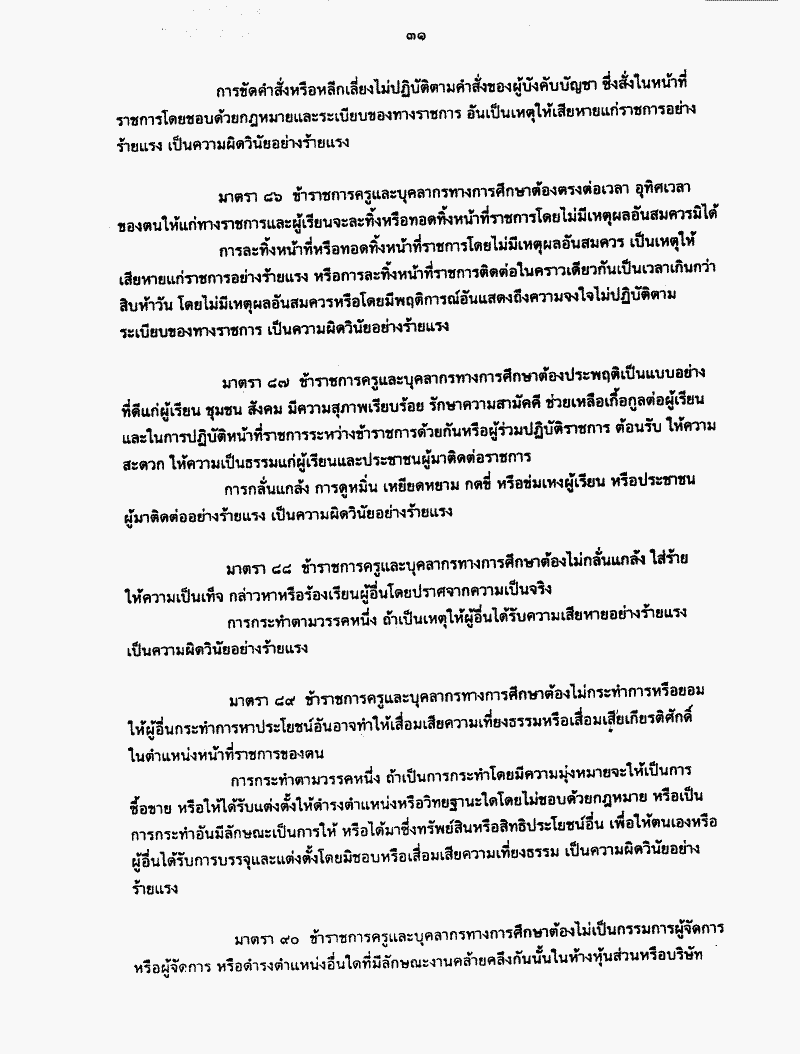 ๓๑
การขัดคำสั่งหรือหลีกเลี่ยงไม่ปฏิบัติตามคำสั่งของผู้บังคับบัญชา ซึ่งสั่งในหน้าที่
ราชการโดยชอบด้วยกฎหมายและระเบียบของทางราชการ อันเป็นเหตุให้เสียหายแก่ราชการอย่าง
ร้ายแรง เป็นความผิดวินัยอย่างร้ายแรง
มาตรา ๘๖ ข้าราชการครูและบุคลากรทางการศึกษาต้องตรงต่อเวลา อุทิศเวลา
ของตนให้แก่ทางราชการและผู้เรียนจะละทิ้งหรือทอดทิ้งหน้าที่ราชการโดยไม่มีเหตุผลอันสมควรมิได้
การละทิ้งหน้าที่หรือทอดทิ้งหน้าที่ราชการโดยไม่มีเหตุผลอันสมควร เป็นเหตุให้
เสียหายแก่ราชการอย่างร้ายแรง หรือการละทิ้งหน้าที่ราชการติดต่อในคราวเดียวกันเป็นเวลาเกินกว่า
สิบห้าวัน โดยไม่มีเหตุผลอันสมควรหรือโดยมีพฤติการณ์อันแสดงถึงความจงใจไม่ปฏิบัติตาม
ระเบียบของทางราชการ เป็นความผิดวินัยอย่างร้ายแรง
มาตรา ๘๗ ข้าราชการครูและบุคลากรทางการศึกษาต้องประพฤติเป็นแบบอย่าง
ที่ดีแก่ผู้เรียน ชุมชน สังคม มีความสุภาพเรียบร้อย รักษาความสามัคคี ช่วยเหลือเกื้อกูลต่อผู้เรียน
และในการปฏิบัติหน้าที่ราชการระหว่างข้าราชการด้วยกันหรือผู้ร่วมปฏิบัติราชการ ต้อนรับ ให้ความ
สะดวก ให้ความเป็นธรรมแก่ผู้เรียนและประชาชนผู้มาติดต่อราชการ
การกลั่นแกล้ง การดูหมิ่น เหยียดหยาม กดขี่ หรือข่มเหงผู้เรียน หรือประชาชน
ผู้มาติดต่ออย่างร้ายแรง เป็นความผิดวินัยอย่างร้ายแรง
มาตรา ๘๘ ข้าราชการครูและบุคลากรทางการศึกษาต้องไม่กลั่นแกล้ง ใส่ร้าย
ให้ความเป็นเท็จ กล่าวหาหรือร้องเรียนผู้อื่นโดยปราศจากความเป็นจริง
การกระทำตามวรรคหนึ่ง ถ้าเป็นเหตุให้ผู้อื่นได้รับความเสียหายอย่างร้ายแรง
เป็นความผิดวินัยอย่างร้ายแรง
มาตรา ๘๙ ข้าราชการครูและบุคลากรทางการศึกษาต้องไม่กระทำการหรือยอม
ให้ผู้อื่นกระทำการหาประโยชน์อันอาจทำให้เสื่อมเสียความเที่ยงธรรมหรือเสื่อมเสียเกียรติศักดิ์
ในตำแหน่งหน้าที่ราชการของตน
การกระทำตามวรรคหนึ่ง ถ้าเป็นการกระทำโดยมีความมุ่งหมายจะให้เป็นการ
ซื้อขาย หรือให้ได้รับแต่งตั้งให้ดำรงตำแหน่งหรือวิทยฐานะใดโดยไม่ชอบด้วยกฎหมาย หรือเป็น
การกระทำอันมีลักษณะเป็นการให้ หรือได้มาซึ่งทรัพย์สินหรือสิทธิประโยชน์อื่น เพื่อให้ตนเองหรือ
ผู้อื่นได้รับการบรรจุและแต่งตั้งโดยมิชอบหรือเสื่อมเสียความเที่ยงธรรม เป็นความผิดวินัยอย่าง
ร้ายแรง
มาตรา ๙๐ ข้าราชการครูและบุคลากรทางการศึกษาต้องไม่เป็นกรรมการผู้จัดการ
หรือผู้จัดการ หรือดำรงตำแหน่งอื่นใดที่มีลักษณะงานคล้ายคลึงกันนั้นในห้างหุ้นส่วนหรือบริษัท